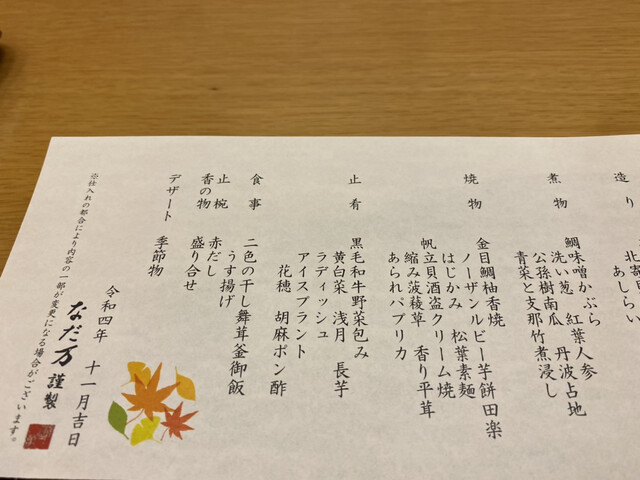 造り
北寄貝
あしらい
煮物
鯛味噌かぶら
洗い葱 紅葉人参
公孫樹南瓜 丹波占地
青菜と支那竹煮浸し
焼物
金目鯛柚香焼
ノーザンルビー芋餅田楽
はじかみ 松葉素麺
帆立貝酒盗クリーム焼
縮み菠薐草 香り平茸
あられパプリカ
止肴
黒毛和牛野菜包み
黄白菜 浅月 長芋
ラディッシュ
アイスプラント
花穂 胡麻ポン酢
食事
二色の干し舞茸釜御飯
うす揚げ
止椀
赤だし
香の物
盛り合せ
デザート
季節物
令和四年 十一月吉日
なだ万 謹製
※仕入れの都合により内容の一部が変更になる場合がございます。